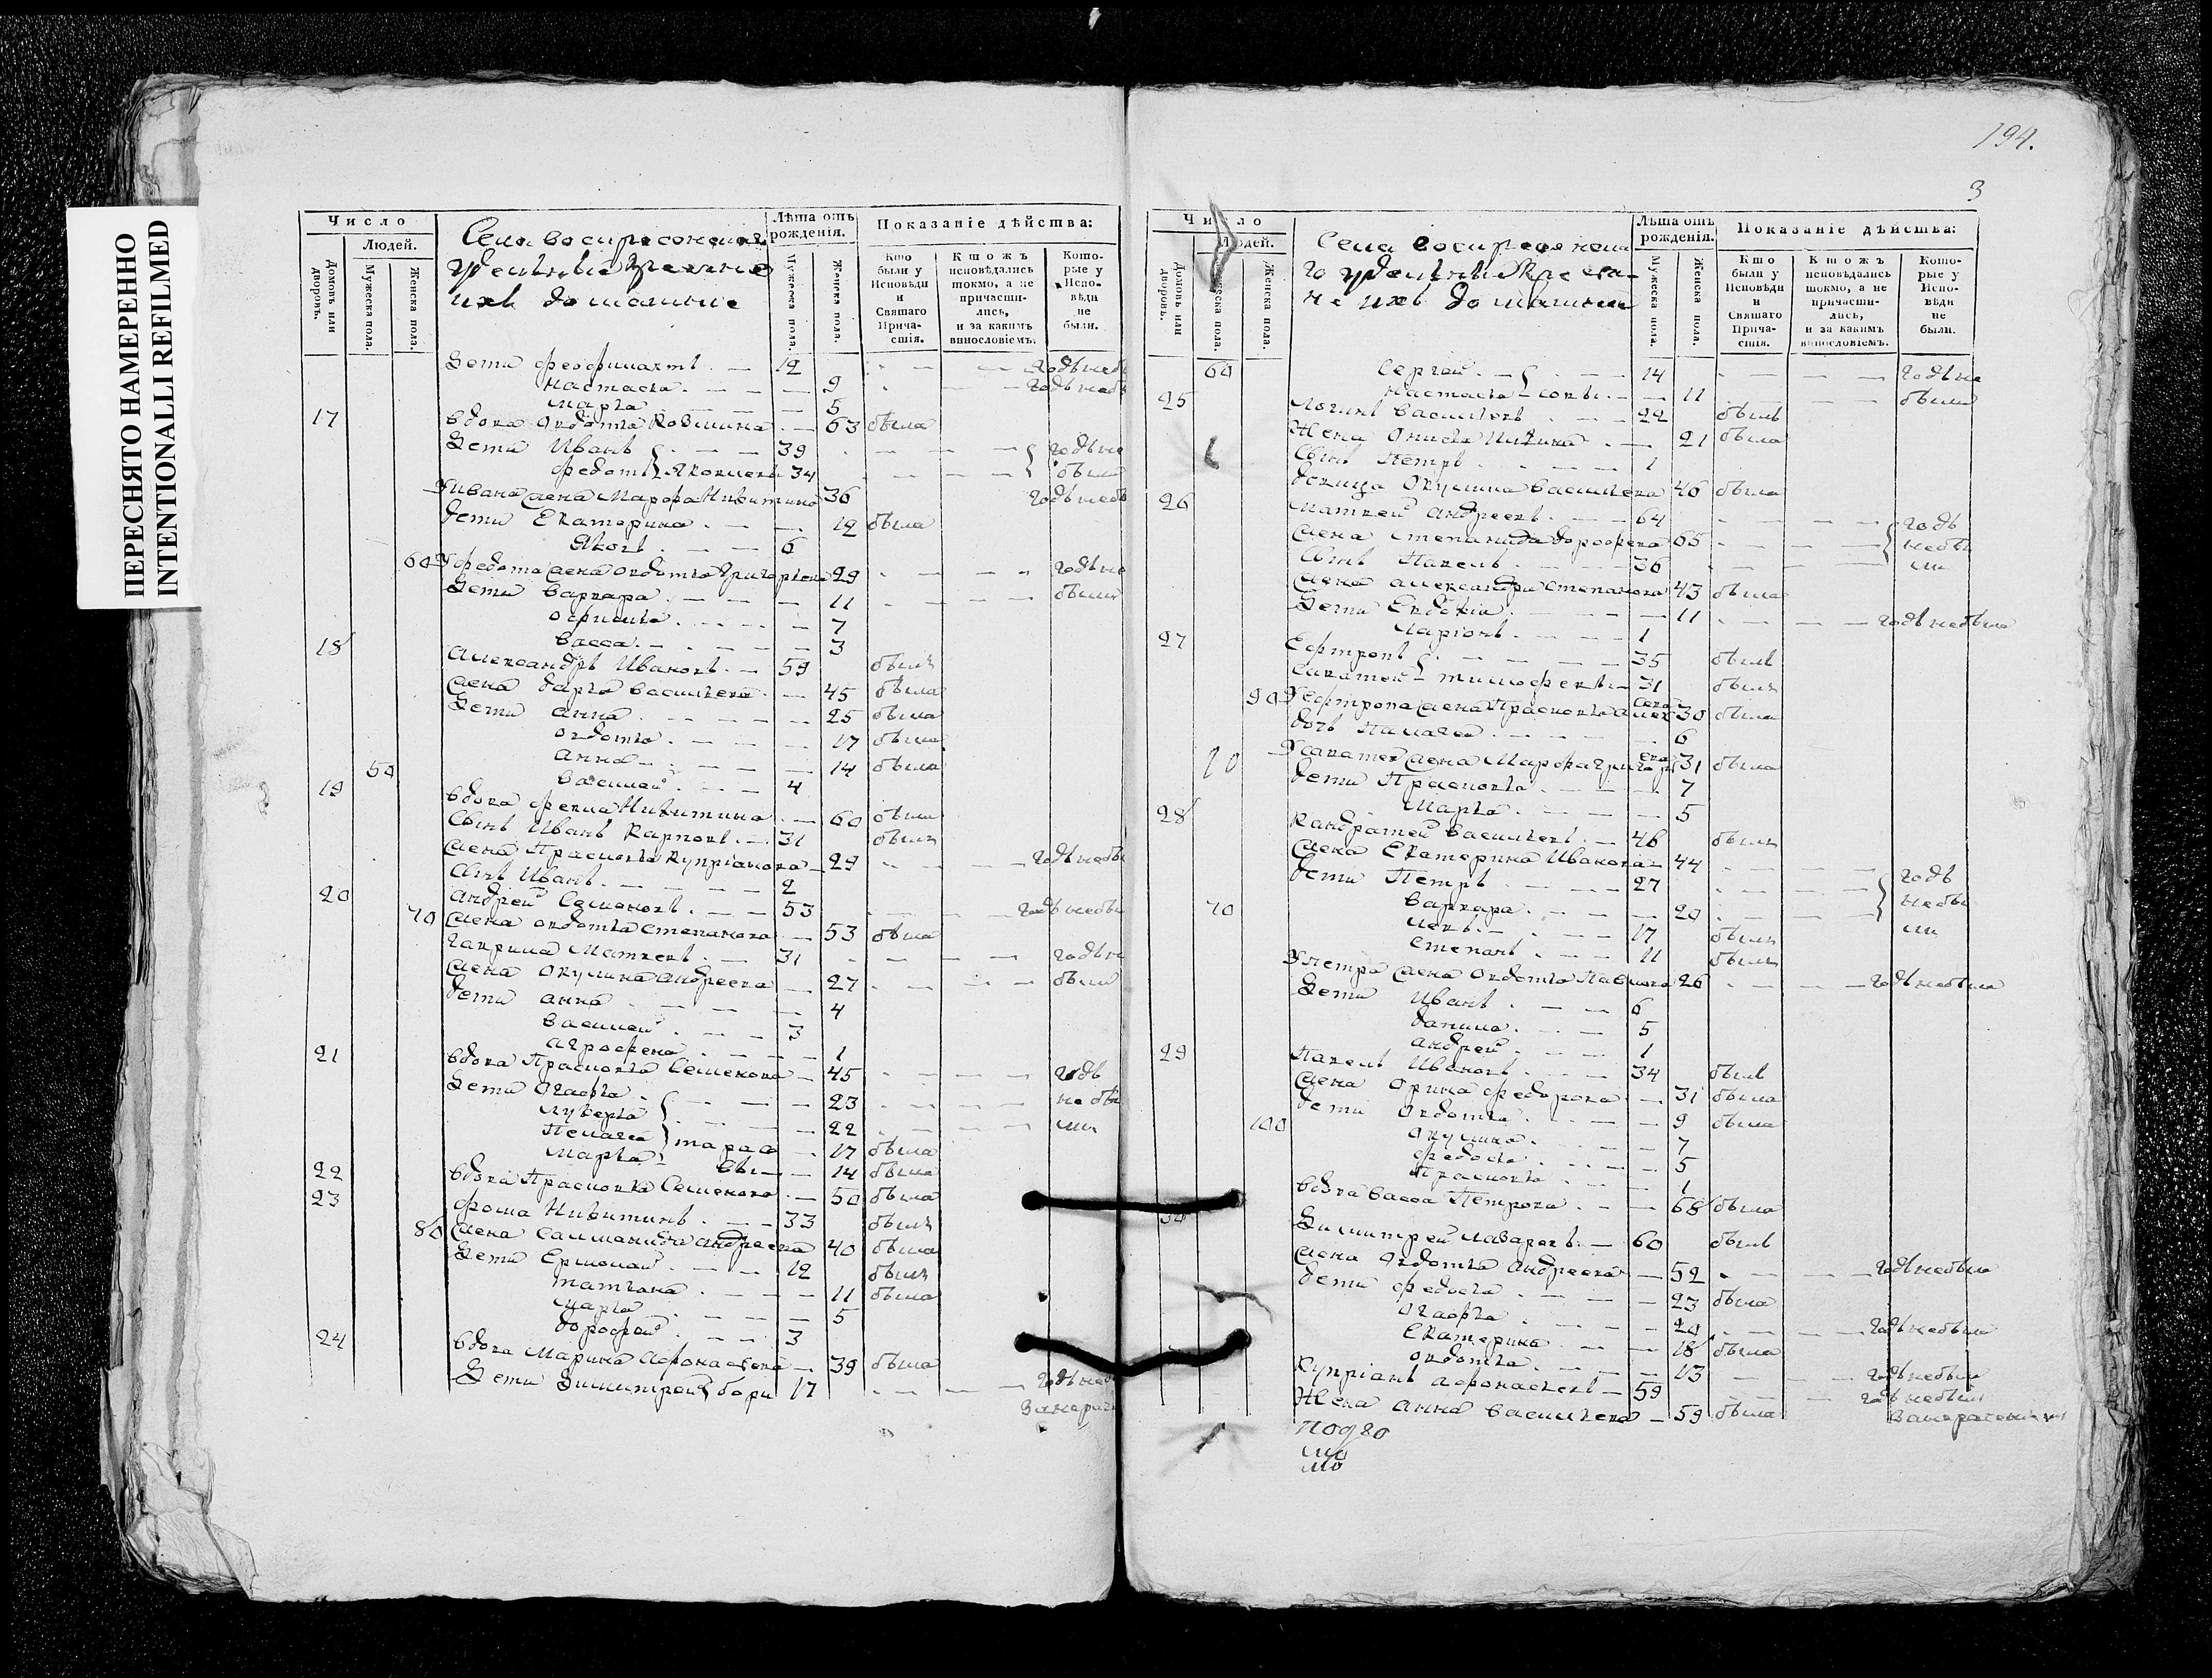 ПЕРЕСНЯТО НАМЕРЕННО
INTENTIONALLI REFILMED
Число
Людей.
Домовъ или дворовъ.
Мужеска пола.
Женска пола.
Села воскресенскаг
удельные
ихъ домашние
Лѣта отъ рождения.
Мужеска пола.
Женска пола.
Показаніе дѣйства:
Кто были у Исповѣди и Святаго Причастія.
Ктожъ исповѣдались токмо, а не причастились, и за какимъ винословіемъ.
Которые у Исповѣди не были.
Дети феофилактъ 12 годъ небы
настасья 9 годъ небы
марья 5
17 вдова овдотья Козмина 63 была
Дети Иванъ 39 годъ не
федотъ Яковлевы 34 были
У ивана жена Марфа Никитина 36 годъ небы
дети Екатерина 12 была
Яковъ 6
60 У федота жена овдотья Григорьева 29 годъ не
Дети варвара 11 были
офимья 7
васса 3
18 александръ Ивановъ 59 былъ
жена дарья васильева 45 была
Дети анна 25 была
овдотья 17 была
анна 14 была
50 василей 4
19 вдова фекла Никитина 60 была
сынъ Иванъ Карповъ 31 былъ
жена Прасковья Купріанова 29 годъ небы
сынъ Иванъ 2
20 андрей Семеновъ 53 годъ небы
70 жена овдотья степанова 53 была
гаврила Матвевъ 31 годъ н
жена окулина андреева 27 были
дети анна 4
василей 3
агрофена 1
21 вдова Прасковья Семенова 45 годъ
Дети огафья 23 не бы
лукерья 22 ли
Пелагея тарасо 17 была
Марья вы 14 была
22 вдова Прасковья Семенова 50 была
23 фома Никитинъ 33 былъ
80 жена саламанида андреева 40 была
Дети Ермолай 12 былъ
татьяна 11 была
марья 5
дорофей 3
24 вдова Марина афонасьева 39 была
Дети Димитрей бори 17 годъ неб
194.
3
Число
Людей.
Домовъ или дворовъ.
Мужеска пола.
Женска пола.
Села воскресенска
го удельны
не ихъ домашнии
Лѣта отъ рождения.
Мужеска пола.
Женска пола.
Показаніе дѣйства:
Кто были у Исповѣди и Святаго Причастія.
Ктожъ исповѣдались токмо, а не причастились, и за какимъ винословіемъ.
Которые у Исповѣди не были.
60 сергей 14 годъ не
настасья совы 11 были
25 логинъ васильевъ 22 былъ
Жена онисья 21 была
сынъ Петръ 1
девица окулина васильева 46 была
26 матвей андреевъ 64 годъ
жена степанида дорофеева 65 небы
сынъ Павелъ 36 ли
жена александра степанова 43 была
Дети Евдокia 11 годъ небыла
ларіонъ 1
27 Ефтропъ 35 былъ
савотей тимофеевы 31 былъ
90 У ефтропа жена Прасковья алексеева 30 была
дочь Палагея 6
У савотея жена Марфа григорьева 31 была
дети Прасковья 7
Марья 5
28 Кандратей васильевъ 46 былъ
жена Екатерина Иванова 44 годъ
дети Петръ 27 небы
70 варвара 20 ли
левъ 17 былъ
степанъ 11 былъ
У петра жена овдотья Павлова 26 годъ небыла
Дети Иванъ 6
данила 5
андрей 1
29 Павелъ Ивановъ 34 былъ
жена орина федорова 31 была
дети овдотья 9 была
100 окулина 7
федосья 5
прасковья 1
вдова васса Петрова 68 была
Димитрей лазаревъ 60 былъ
жена овдотья андреева 52 годъ небыла
дети федосья 23 была
огафья 20 годъ небыла
Екатерина 18 была
овдотья 13 годъ небыла
Купріанъ афонасьевъ 59 годъ небылъ
Жена анна васильева 59 была